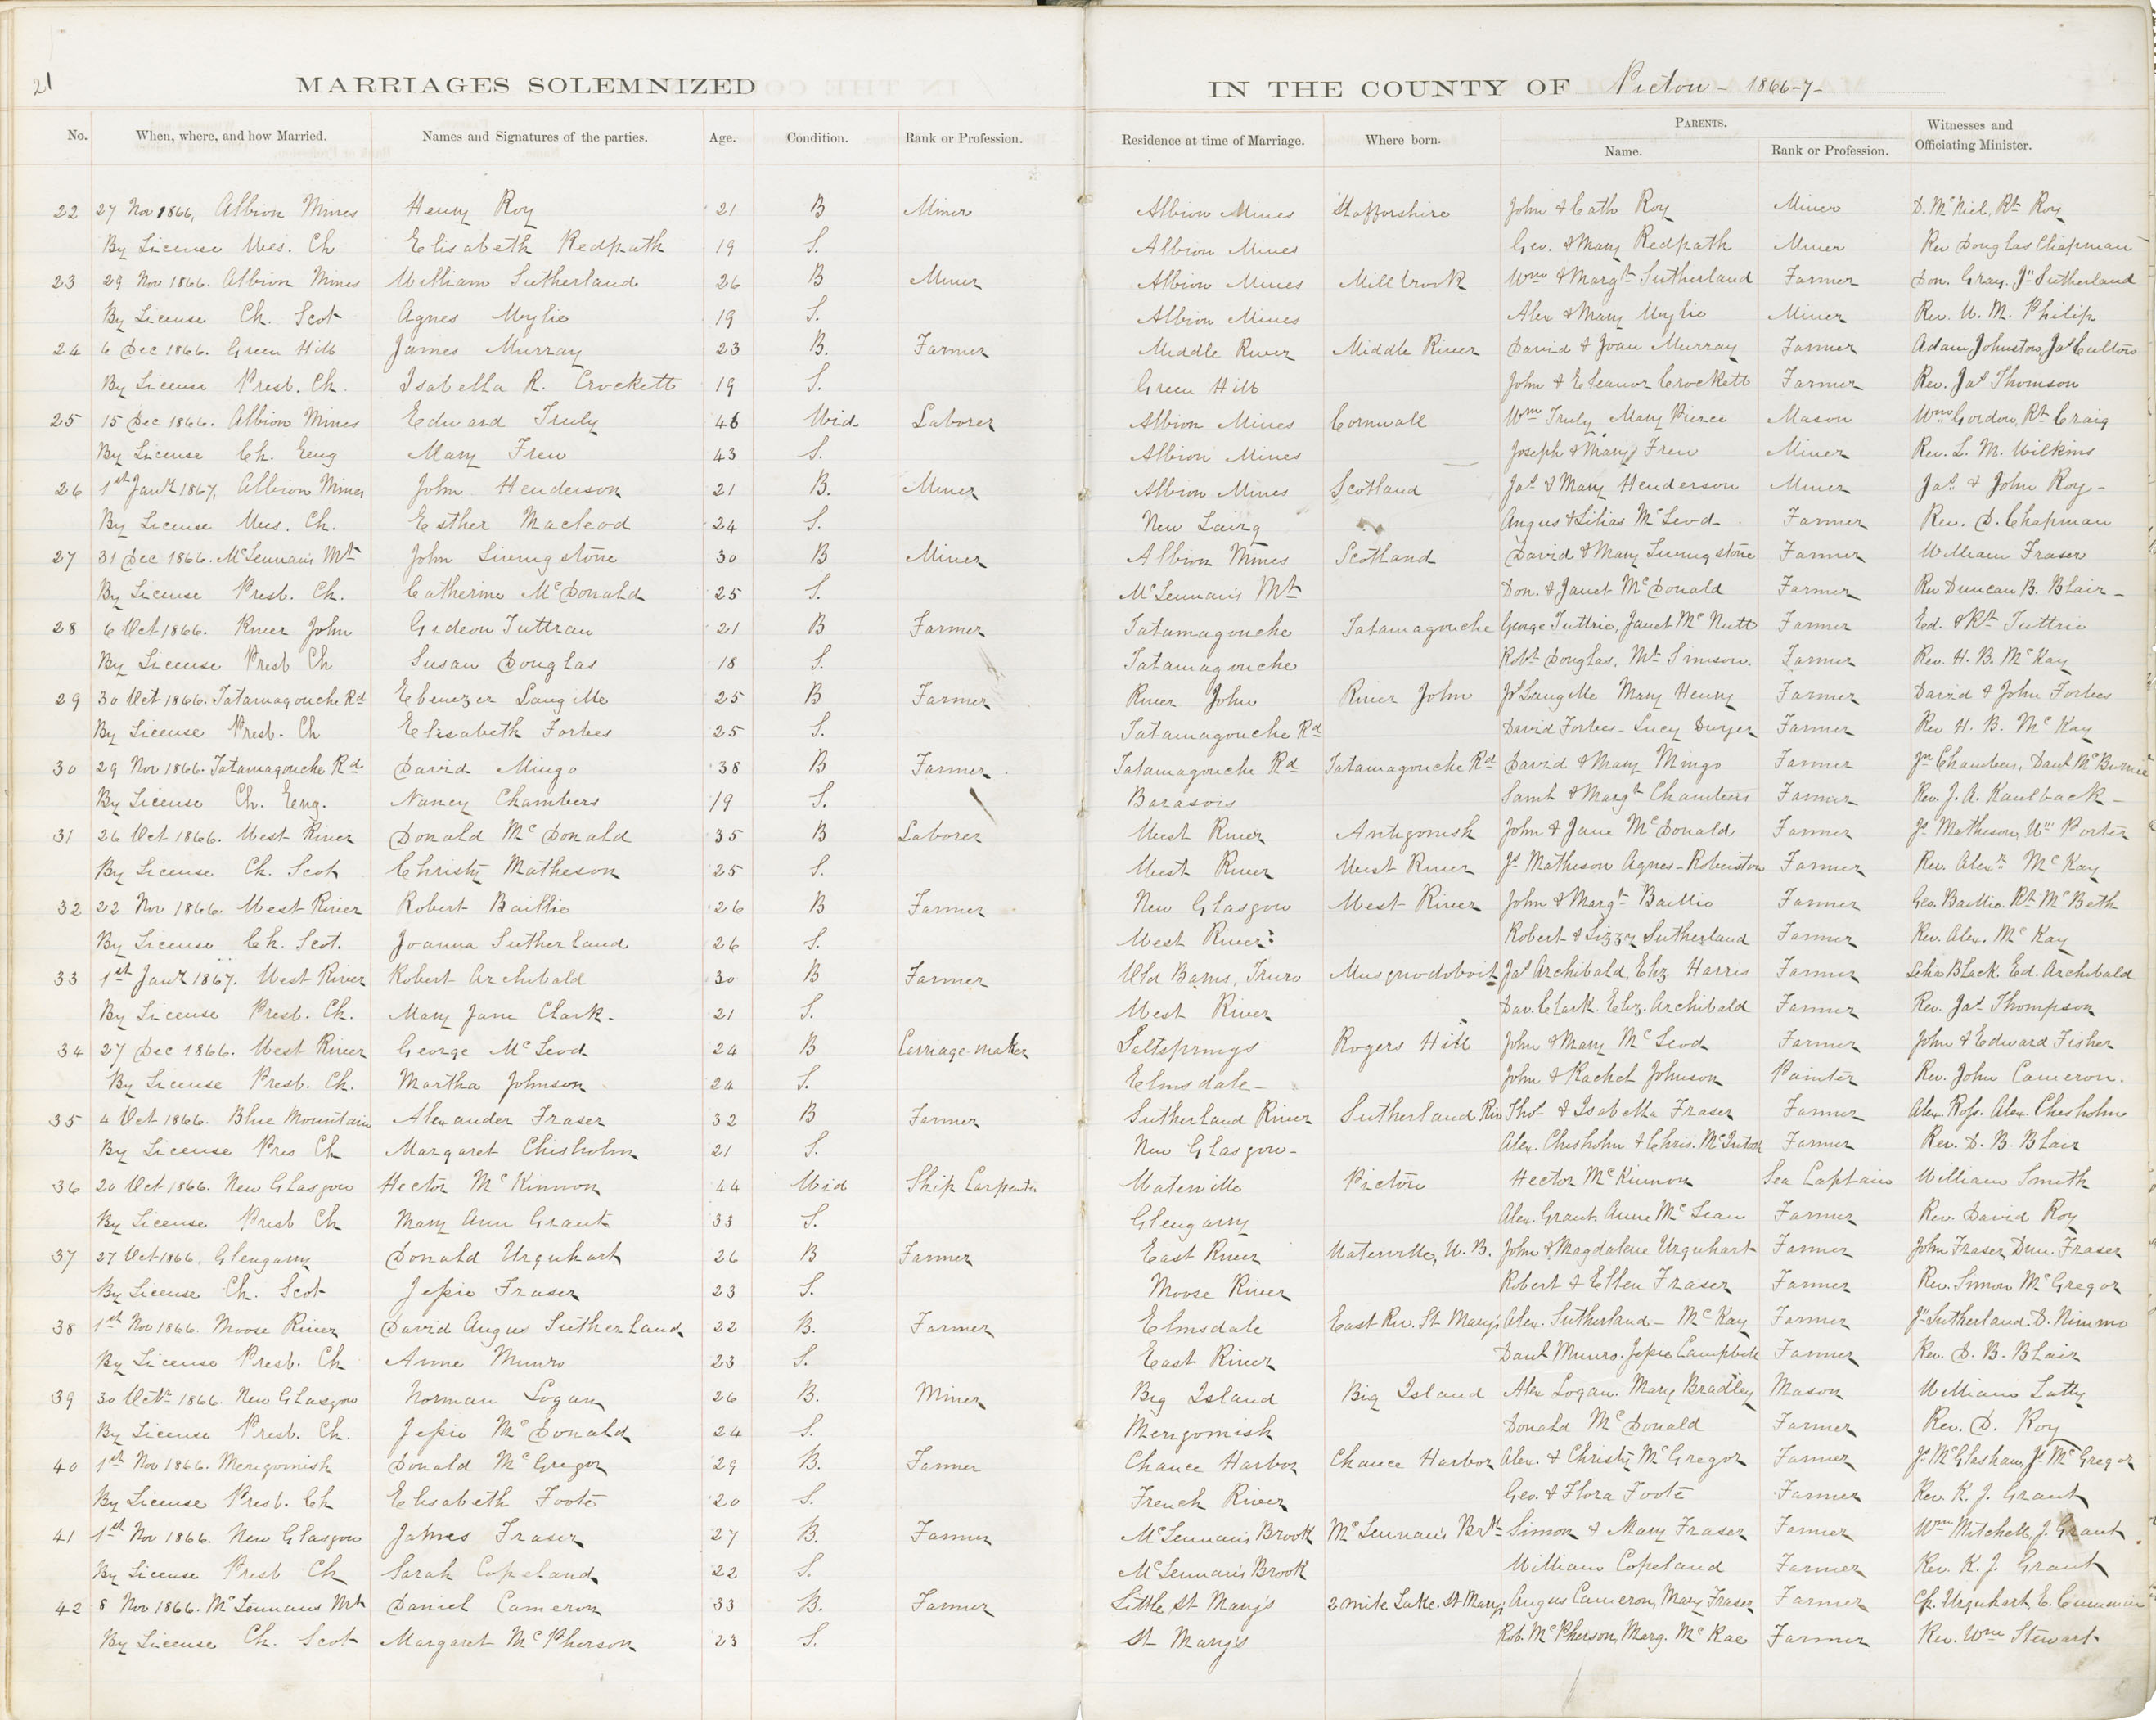 21
MARRIAGES SOLEMNIZED IN THE COUNTY OF Pictou - 1866-7-
No. When, where, and how Married. Names and Signatures of the parties. Age. Condition. Rank or Profession. Residence at time of Marriage. Where born. PARENTS. Name. Rank or Profession. Witnesses and Officiating Minister.
22 27 Nov 1866, Albion Mines Henry Roy 21 B Miner Albion Mines Staffordshire John & Cath Roy Miner D. McNiel, Rt Roy
By License Wes. Ch Elisabeth Redpath 19 S. Albion Mines Geo. & Mary Redpath Miner Rev Douglas Chapman
23 29 Nov 1866. Albion Mines William Sutherland 26 B Miner Albion Mines Millbrook Wm & Margt Sutherland Farmer Don. Gray. Jn Sutherland
By License Ch. Scot Agnes Wylie 19 S. Albion Mines Alex & Mary Wylie Miner Rev. W. M. Philip
24 6 Dec 1866. Green Hill James Murray 23 B. Farmer Middle River Middle River David & Joan Murray Farmer Adam Johnston, Jas Culton
By License Presb. Ch. Isabella R. Crockett 19 S. Green Hill John & Eleanor Crockett Farmer Rev. Jas Thomson
25 15 Dec 1866. Albion Mines Edward Truly 46 Wid Laborer Albion Mines Cornwall Wm Truly, Mary Pierce Mason Wm Gordon, Rt Craig
By License Ch. Eng Mary Frew 43 S. Albion Mines Joseph & Mary Frew Miner Rev. L. M. Wilkins
26 1st Jany 1867, Albion Mines John Henderson 21 B. Miner Albion Mines Scotland Jas & Mary Henderson Miner Jas & John Roy -
By License Wes. Ch. Esther Macleod 24 S. New Lairg Angus & Lilias McLeod Farmer Rev. D. Chapman
27 31 Dec 1866. McLennan's Mt John Livingstone 30 B Miner Albion Mines Scotland David & Mary Livingstone Farmer William Fraser
By License Presb. Ch. Catherine McDonald 25 S. McLennan's Mt Don. & Janet McDonald Farmer Rev Duncan B. Blair -
28 6 Oct 1866. River John Gideon Tuttrau 21 B Farmer Tatamagouche Tatamagouche George Tuttrie, Janet McNutt Farmer Ed. & Rt Tuttrie
By License Presb Ch Susan Douglas 18 S. Tatamagouche Robt Douglas, Mt Simson. Farmer Rev. H. B. McKay
29 30 Oct 1866. Tatamagouche Rd Ebenezer Langille 25 B Farmer River John River John Js Langille Mary Henry Farmer David & John Forbes
By License Presb. Ch Elisabeth Forbes 25 S. Tatamagouche Rd David Forbes - Lucy Dwyer Farmer Rev H. B. McKay
30 29 Nov 1866. Tatamagouche Rd David Mingo 38 B Farmer Tatamagouche Rd Tatamagouche Rd David & Mary Mingo Farmer Jn Chambers, Danl McBurnie
By License Ch. Eng. Nancy Chambers 19 S. Barasois Saml & Margt Chambers Farmer Rev. J. A. Kaulback -
31 26 Oct 1866. West River Donald McDonald 35 B Laborer West River Antigonish John & Jane McDonald Farmer Js Matheson, Wm Porter
By License Ch. Scot Christy Matheson 25 S. West River West River Js Matheson Agnes - Robertson Farmer Rev. Alexr McKay
32 22 Nov 1866. West River Robert Baillie 26 B Farmer New Glasgow West River John & Margt Baillie Farmer Geo. Baillie. Rt McBeth
By License Ch. Scot. Joanna Sutherland 26 S. West River: Robert & Lizzy Sutherland Farmer Rev. Alex. McKay
33 1st Jany 1867. West River Robert Archibald 30 B Farmer Old Barns, Truro Musquodoboit Jas Archibald, Eliz. Harris Farmer Selia Black. Ed. Archibald
By License Presb. Ch. Mary Jane Clark - 21 S. West River Dav. Clark. Eliz. Archibald Farmer Rev. Jas Thompson
34 27 Dec 1866. West River George McLeod 24 B Carriage-maker Saltsprings Rogers Hill John & Mary McLeod Farmer John & Edward Fisher
By License Presb. Ch. Martha Johnson 24 S. Elmsdale - John & Rachel Johnson Painter Rev. John Cameron.
35 4 Oct 1866. Blue Mountain Alexander Fraser 32 B Farmer Sutherland River Sutherland Riv Thos & Isabella Fraser Farmer Alex. Ross. Alex. Chisholm
By License Pres Ch Margaret Chisholm 21 S. New Glasgow - Alex. Chisholm & Chris. McIntosh Farmer Rev. D. B. Blair
36 20 Oct 1866. New Glasgow Hector McKinnon 44 Wid Ship Carpenter Waterville Pictou Hector McKinnon Sea Captain William Smith
By License Presb Ch Mary Ann Grant 33 S. Glengarry Alex. Grant. Anne McLean Farmer Rev. David Roy
37 27 Oct 1866, Glengarry Donald Urquhart 26 B Farmer East River Waterville, N. B. John & Magdalene Urquhart Farmer John Fraser, Dun. Fraser
By License Ch. Scot Jessie Fraser 23 S. Moose River Robert & Ellen Fraser Farmer Rev. Simon McGregor
38 1st Nov 1866. Moose River David Angus Sutherland 22 B. Farmer Elmsdale East Riv. St Mary's Alex. Sutherland - McKay Farmer Jn Sutherland. D. Nimmo
By License Presb. Ch Anne Munro 23 S. East River Danl Munro. Jessie Campbell Farmer Rev. D. B. Blair
39 30 Octr 1866. New Glasgow Norman Logan 26 B. Miner Big Island Big Island Alex Logan. Mary Bradley Mason William Latty
By License Presb. Ch. Jessie McDonald 24 S. Merigomish Donald McDonald Farmer Rev. D. Roy
40 1st Nov 1866. Merigomish Donald McGregor 29 B. Farmer Chance Harbor Chance Harbor Alex. & Christy McGregor Farmer Js McGlashan, Js McGregor
By License Presb. Ch Elisabeth Foote 20 S. French River Geo. & Flora Foote Farmer Rev. K. J. Grant
41 1st Nov 1866. New Glasgow James Fraser 27 B. Farmer McLennan's Brook McLennan's Brk Simon & Mary Fraser Farmer Wm Mitchell, J. Grant
By License Presb Ch Sarah Copeland 22 S. McLennan's Brook William Copeland Farmer Rev. K. J. Grant
42 8 Nov 1866. McLennans Mt Daniel Cameron 33 B. Farmer Little St Mary's 2 mile Lake. St Mary's Angus Cameron, Mary Fraser Farmer Ch. Urquhart, E.
By License Ch. Scot Margaret McPherson 23 S. St Mary's Rob. McPherson, Marg. McRae Farmer Rev. Wm Stewart